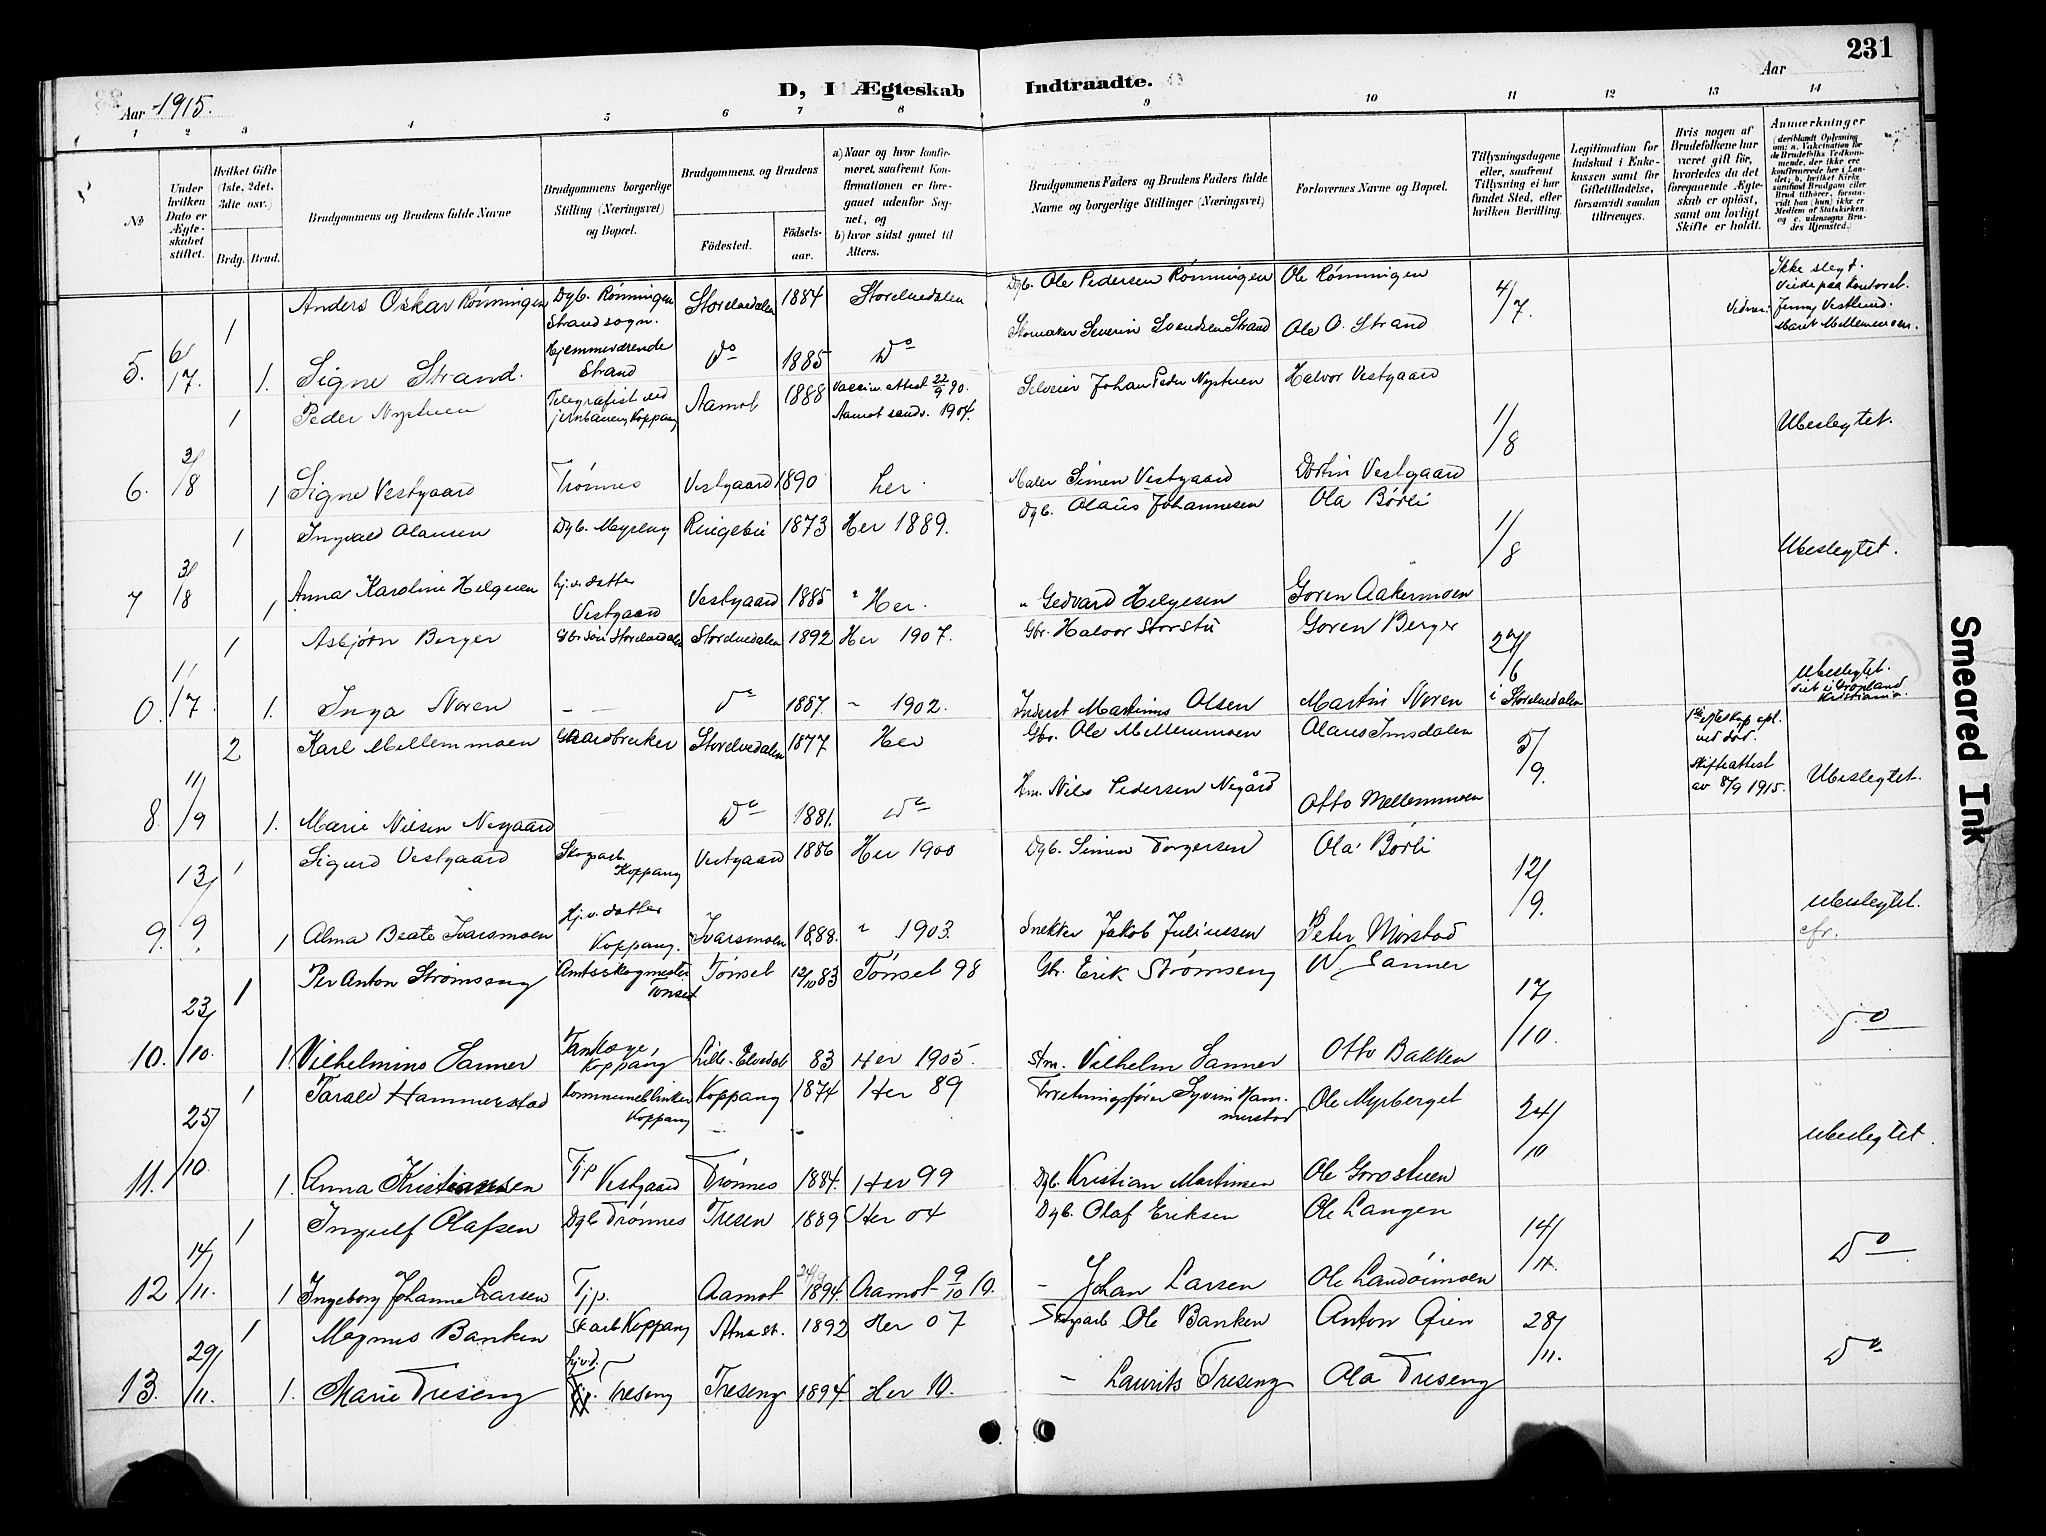 231
Aar 1915.
D, I Ægteskab Indtraadte.
Aar
1 2 3 4 5 6 7 8 9 10 11 12 13 14
№
Under hvilken Dato er Ægteskabet stiftet.
Hvilket Gifte (1ste, 2det, 3die osv.)
Brdg. Brud.
Brudgommens og Brudens fulde Navne
Brudgommens borgerlige Stilling (Næringsvei) og Bopæl.
Brudgommens og Brudens
Födested.
Födselsaar.
a) Naar og hvor konfirmeret, saafremt Konfirmationen er foregaaet udenfor Sognet, og
b) hvor sidst gaaet til Alters.
Brudgommens Faders og Brudens Faders fulde Navne og borgerlige Stillinger (Næringsvei)
Forlovernes Navne og Bopæl.
Tillysningsdagene eller, saafremt Tillysning ei har fundet Sted, efter hvilken Bevilling.
Legitimation for Indskud i Enkekassen samt for Giftetilladelse, forsaavidt saadan tiltrænges.
Hvis nogen af Brudefolkene har været gift för, hvorledes da det foregaaende Ægteskab er oplöst, samt om lovligt Skifte er holdt.
Anmærkninger
5. 6/17. 1 Anders Oskar Rönningen Dgb. Rönningen Strand sogn. Storelvedalen 1884 Storelvedalen Dgb. Ole Pedersen Rönningen Ole Rönningen 4/7. Ikke slegt. Viede paa kontoret. Vidner: Jenny Vestlund. Marit Mellemmoen.
1. Signe Strand. Hjemmeværende Strand Do 1885 Do Skomaker Severin Svendsen Strand Ole O. Strand
6. 3/8 1 Peder Nystuen Telegrafist ved jernbanen, Koppang Aamot 1888 Vaccin attest 22/9 90. Aamot 1904. Johan Peder Nystuen Halvor Vestgaard 1/8 Ubeslegtet.
1 Signe Vestgaard Trönnes Vestgaard 1890 her Maler Simen Vestgaard Vestgaard
7 3/8 1 Ingvald Olausen Dgb. Myreng Ringebu 1873 Her 1889. Dgb. Olaus Johannesen Ola Börli 1/8 Ubeslegtet.
1 Anna Karoline Helgesen hj.v. datter Vestgaard Vestgaard 1885 " Her. " Gedvard Helgesen Goren Aakermoen
0. 1/17 1 Asbjörn Berger Gbr. sön Storelvedalen Storelvedalen 1892 Her 1907. Gbr. Halvor Storstu Goren Berger 27/6 i Storelvedalen Ubeslegtet. Viet i Grönland Kristiania.
1. Inga Noren – – Do 1887. " 1902. Inderst Martinus Olsen Martin Noren
8. 11/9 2 Karl Mellemmoen Gaardbruker Storelvedalen 1877 Her Gbr. Ole Mellemmoen Olaus Imsdalen 5/9. 1ste egteskap opl. ved död. Skifteattest av 8/9 1915. Ubeslegtet.
1. Marie Nilsen Nygaard Do 1881. Do Hm. Nils Pedersen Nygård Otto Mellemmoen
9. 13/9. 1 Sigurd Vestgaard Skogarb. Koppang Vestgaard 1886 Her 1900 Dgb. Simen Torgersen Ola Börli 12/9. Ubeslegtet. cfr.
1 Alma Beate Ivarsmoen Hj.v. datter Koppang. Ivarsmoen 1888. " 1903. Snekker Jakob Juliussen Peter Mörstad
10. 23/10. 1 Per Anton Strömseng Amtsskogmester Tönset Tönset 12/10 83 Tönset 98 Gbr. Erik Strömseng W. Sanner 17/10. Do
1. Vilhelmine Sanner Koppang Lille-Elvedal 83 Her 1905. Stm. Vilhelm Sanner Otto Bakken
11. 25/10. 1 Tarald Hammerstad Koppang Koppang 1874 Her 89 Forretningsförer Syver Hammerstad Ole Myrberget 24/10 Ubeslegtet.
1. Anna Kristiansen Tjp Vestgaard Trönnes 1884. Her 99 Dgb. Kristian Martinsen Ole Grostuen
12 14/11. 1 Ingulf Olafsen Dgb Trönnes Tresen 1889 Her 04 Dgb. Olaf Eriksen Ole Langen 14/11. Do
1 Ingeborg Johanne Larsen Tjp. Aamot 1894. Aamot 9/10 10. " Johan Larsen Ole Landöimoen
13. 29/11. 1 Magnus Banken Sk arb Koppang Atna st. 1892 Her 07 Skogarb Ole Banken Anton Öien 28/11. Do
1. Marie Treseng hj.v.d. Treseng Treseng 1894 Her 10. " Laurits Treseng Ola Treseng
Smeared Ink